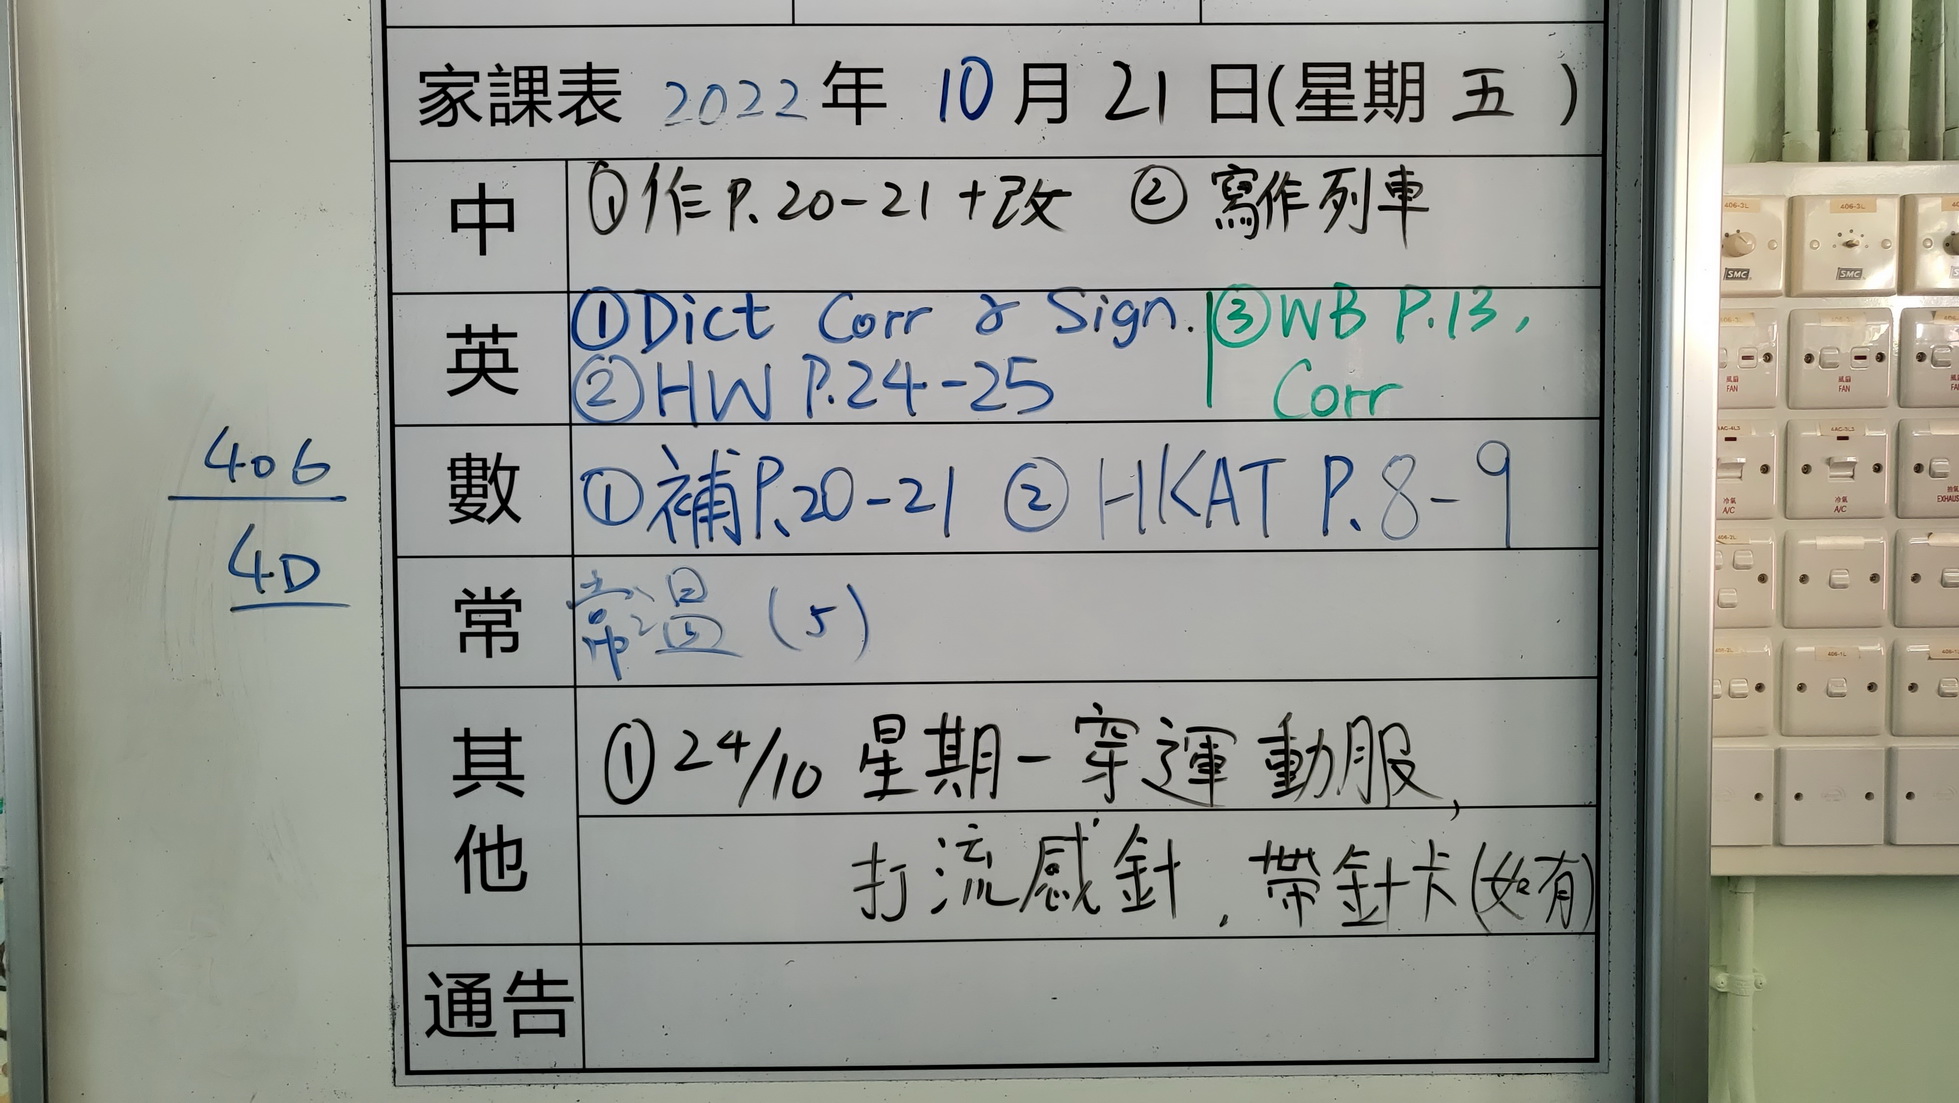 家課表 2022年 10月21日(星期五)
中
①作P.20-21+改 ②寫作列車
英
①Dict Corr & Sign. ③WB P.13,
②HW P.24-25 Corr
數
①補P.20-21 ②HKAT P.8-9
常
常溫(5)
其他
①24/10 星期一穿運動服,
打流感針,帶針卡(如有)
通告
406
4D
406-3L
406-3L
SMC
SMC
風扇
FAN
風扇
FAN
冷氣
A/C
冷氣
A/C
EXHAUS
406-1L